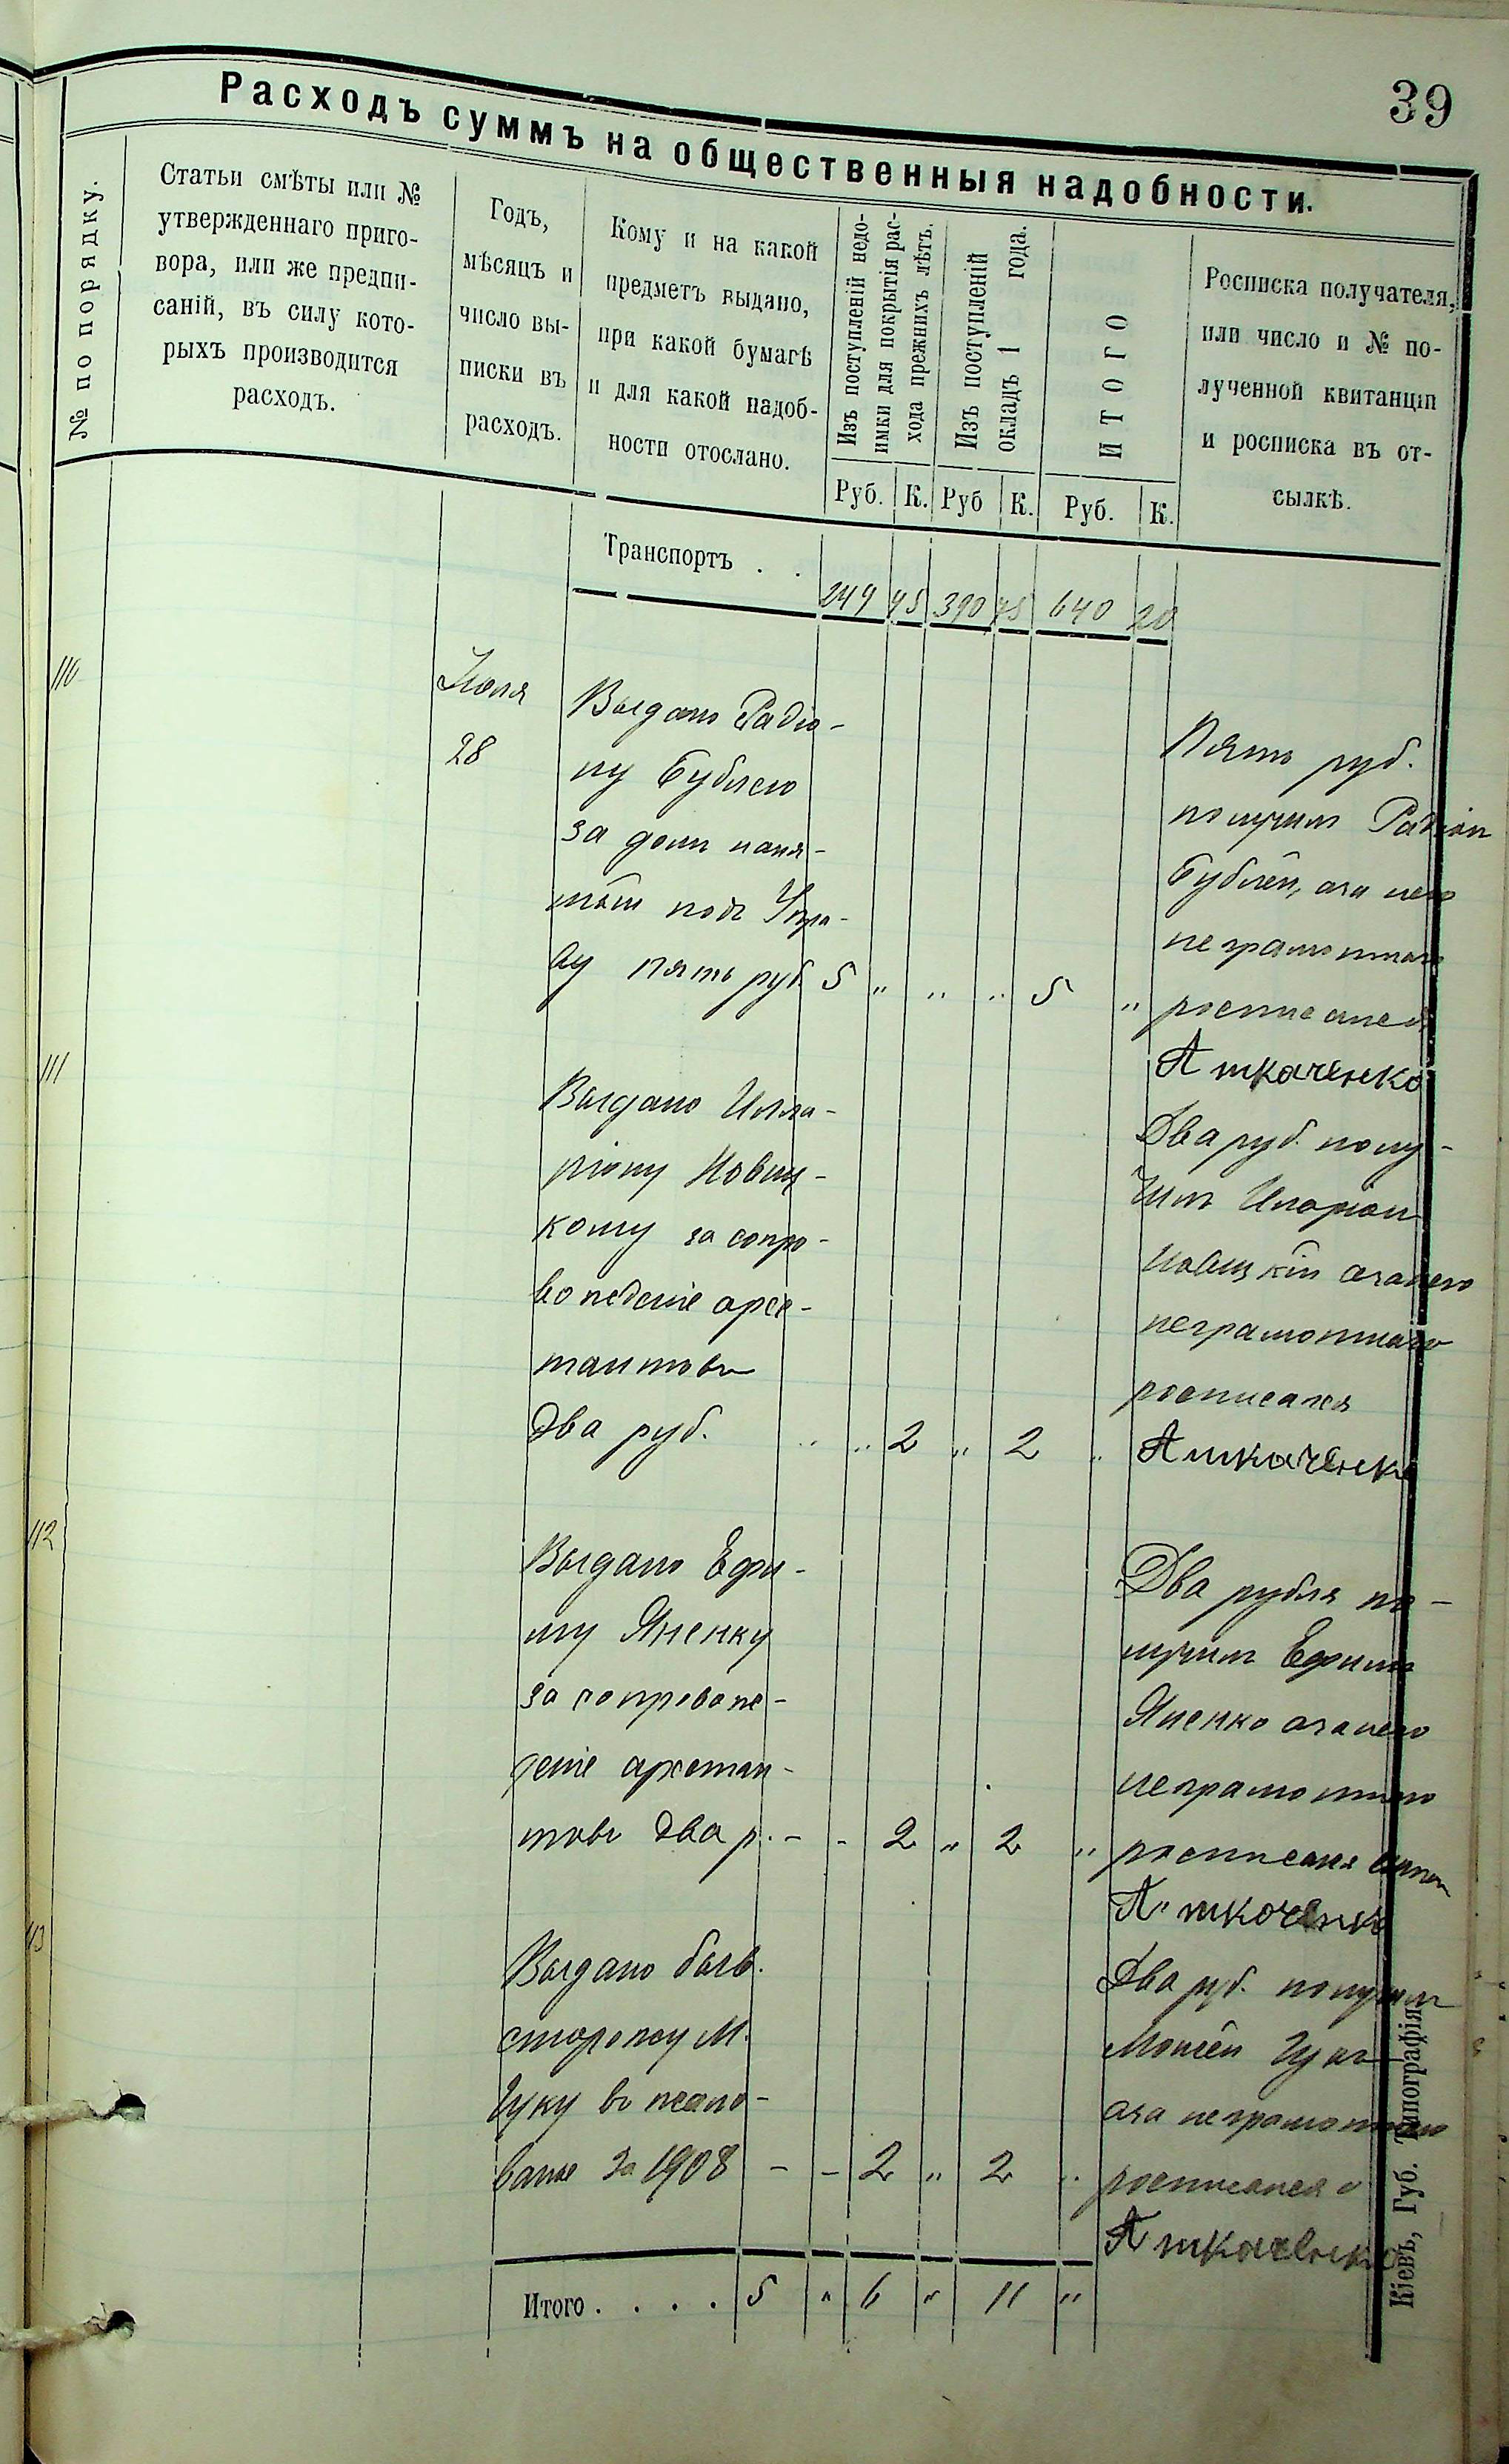 39
Расходъ суммъ на общественныя надобности.
№ по порядку.
Статьи смѣты или №
утвержденнаго приго-
вора, или же предпи-
саній, въ силу кото-
рыхъ производится
расходъ.
Годъ,
мѣсяцъ и
число вы-
писки въ
расходъ.
Кому и на какой
предметъ выдано,
при какой бумагѣ
и для какой надоб-
ности отослано.
Изъ поступленій недо-
имки для покрытія рас-
хода прежнихъ лѣтъ.
Изъ поступленій
окладъ 1 года.
ИТОГО
Росписка получателя,
или число и № по-
лученной квитанціи
и росписка въ от-
сылкѣ.
Руб. К. Руб К. Руб. К.
Транспортъ . .
249 45 390 75 640 20
110
Июля
28
Выдано Радіо-
ну Бублею
за домъ наня-
тый подъ Упра-
ву пять руб. 5 „ „ „ 5 „
Пять руб.
получилъ Радіон
Ублей, а за него
неграмотнаго
росписался
А Ткаченко
111
Выдано Илла-
ріону Новиц-
кому за сопро-
вождение арес-
тантовъ
два руб. „ „ 2 „ 2 „
Два руб. полу-
чилъ Иларіон
Новицкій а за него
неграмотнаго
росписался
А Ткаченко
112
Выдано Ефи-
му Яненку
за сопровож-
деніе арестан-
товъ два р. - - 2 „ 2 „
Два рубля по-
лучилъ Ефимъ
Яненко а за него
неграмотнаго
росписался
А Ткаченко
113
Выдано бывш.
сторожу М.
Цуку в жало-
ванье за 1908 - - 2 „ 2 „
Два руб. получилъ
Моисей Цукъ
а за неграмотнаго
росписался
А Ткаченко
Итого . . . . 5 „ 6 „ 11 „
Кіевъ, Губ. Типографія